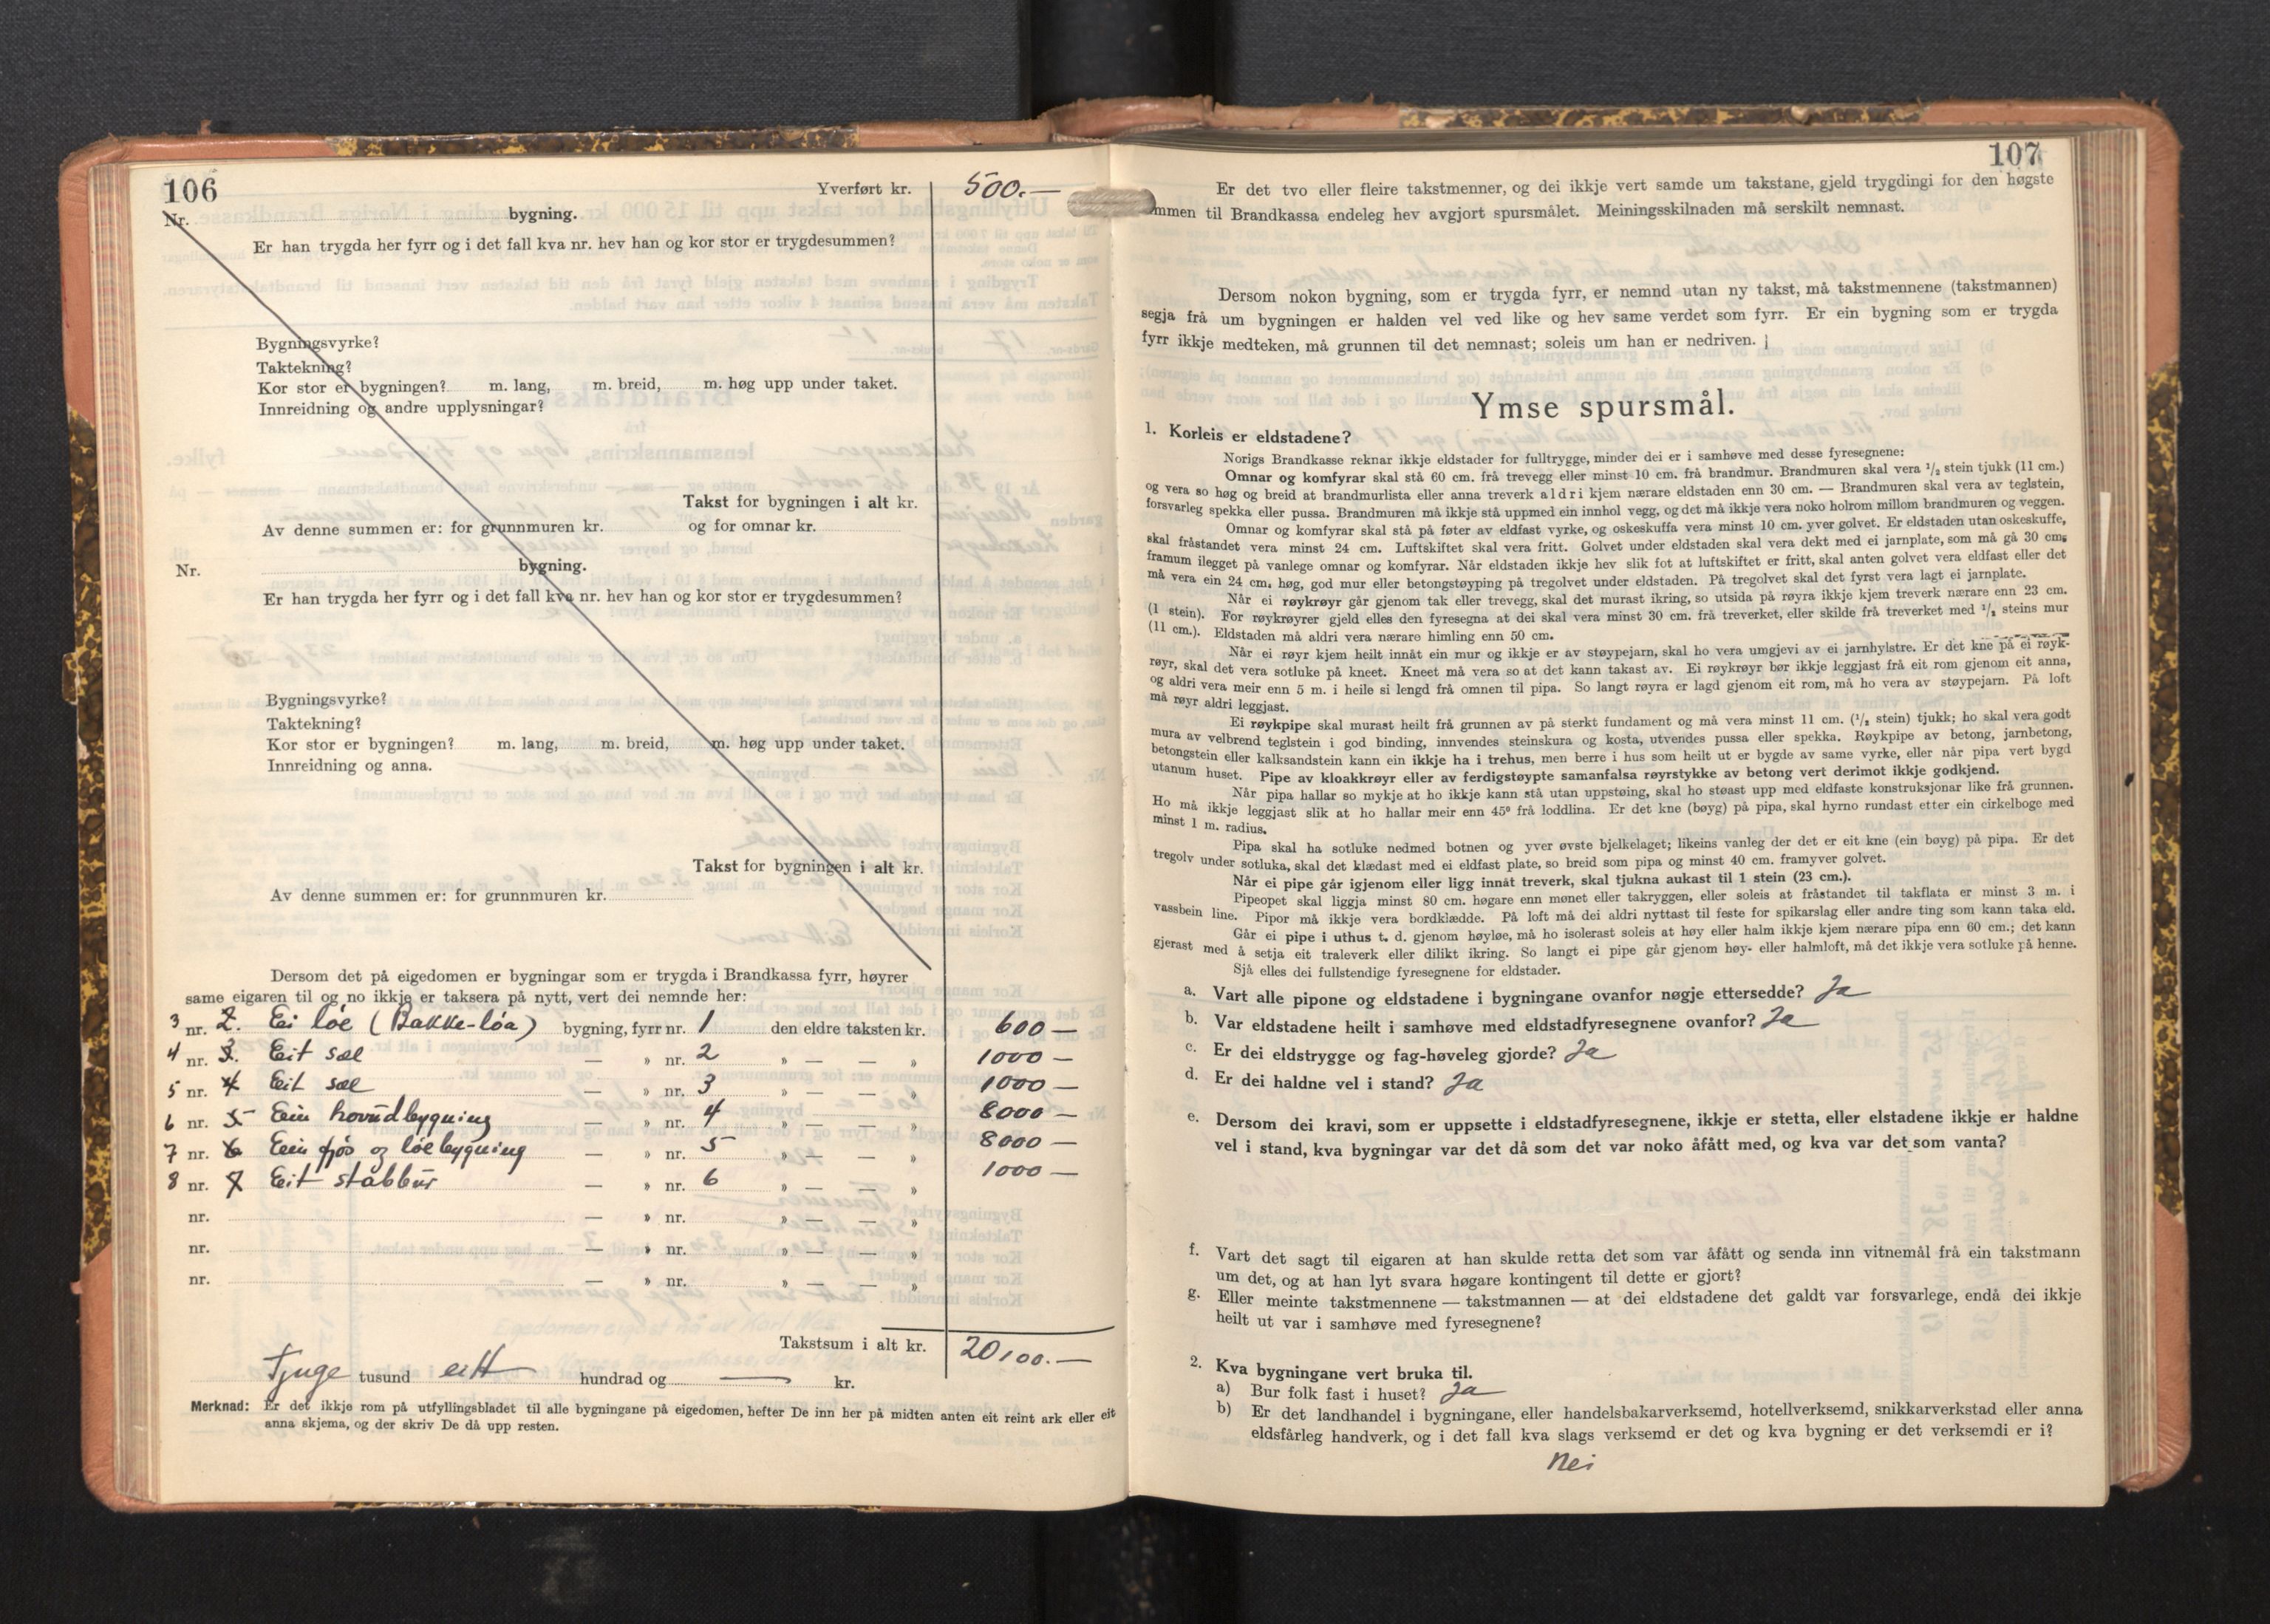 106
Yverført kr. 500.—
Nr. bygning.
Er han trygda her fyrr og i det fall kva nr. hev han og kor stor er trygdesummen?
Bygningsvyrke?
Taktekning?
Kor stor er bygningen? m. lang, m. breid, m. høg upp under taket.
Innreidning og andre upplysningar?
Takst for bygningen i alt kr.
Av denne summen er: for grunnmuren kr. og for omnar kr.
Nr. bygning.
Er han trygda her fyrr og i det fall kva nr. hev han og kor stor er trygdesummen?
Bygningsvyrke?
Taktekning?
Kor stor er bygningen? m. lang, m. breid, m. høg upp under taket.
Innreidning og anna.
Takst for bygningen i alt kr.
Av denne summen er: for grunnmuren kr.
Dersom det på eigedomen er bygningar som er trygda i Brandkassa fyrr, høyrer
same eigaren til og no ikkje er taksera på nytt, vert dei nemnde her:
3 nr. 2. Ei løe (Bakke-løa) bygning, fyrr nr. 1 den eldre taksten kr. 600 —
4 nr. 3. Eit sæl — » nr. 2 » — — » 1000 —
5 nr. 4 Eit sæl — » nr. 3 » — — » 1000 —
6 nr. 5 Ein hovudbygning — » nr. 4 » — — » 8000 —
7 nr. 6 Ein fjøs og løebygning — » nr. 5 » — — » 8000 —
8 nr. 7 Eit stabbur — » nr. 6 » — — » 1000 —
nr. — » nr. » — — »
nr. — » nr. » — — »
nr. — » nr. » — — »
Takstsum i alt kr. 20100.—
Tjuge tusund eitt hundrad og — kr.
Merknad: Er det ikkje rom på utfyllingsbladet til alle bygningane på eigedomen, hefter De inn her på midten anten eit reint ark eller eit
anna skjema, og der skriv De då upp resten.
107
Er det tvo eller fleire takstmenner, og dei ikkje vert samde um takstane, gjeld trygdingi for den høgste
mmen til Brandkassa endeleg hev avgjort spursmålet. Meiningsskilnaden må serskilt nemnast.
Dersom nokon bygning, som er trygda fyrr, er nemnd utan ny takst, må takstmennene (takstmannen)
segja frå um bygningen er halden vel ved like og hev same verdet som fyrr. Er ein bygning som er trygda
fyrr ikkje medteken, må grunnen til det nemnast; soleis um han er nedriven.
Ymse spursmål.
1. Korleis er eldstadene?
Norigs Brandkasse reknar ikkje eldstader for fulltrygge, minder dei er i samhøve med desse fyresegnene:
Omnar og komfyrar skal stå 60 cm. frå trevegg eller minst 10 cm. frå brandmur. Brandmuren skal vera 1/2 stein tjukk (11 cm.)
og vera so høg og breid at brandmurlista eller anna treverk aldri kjem nærare eldstaden enn 30 cm. — Brandmuren skal vera av teglstein,
forsvarleg spekka eller pussa. Brandmuren må ikkje stå uppmed ein innhol vegg, og det må ikkje vera noko holrom millom brandmuren og veggen.
Omnar og komfyrar skal stå på føter av eldfast vyrke, og oskeskuffa vera minst 10 cm. yver golvet. Er eldstaden utan oskeskuffe,
skal fråstandet vera minst 24 cm. Luftskiftet skal vera fritt. Golvet under eldstaden skal vera dekt med ei jarnplate, som må gå 30 cm.
framum ilegget på vanlege omnar og komfyrar. Når eldstaden ikkje hev slik fot at luftskiftet er fritt, skal anten golvet vera eldfast eller det
må vera ein 24 cm. høg, god mur eller betongstøyping på tregolvet under eldstaden. På tregolvet skal det fyrst vera lagt ei jarnplate.
Når ei røykrøyr går gjenom tak eller trevegg, skal det murast ikring, so utsida på røyra ikkje kjem treverk nærare enn 23 cm.
(1 stein). For røykrøyrer gjeld elles den fyresegna at dei skal vera minst 30 cm. frå treverket, eller skilde frå treverket med 1/2 steins mur
(11 cm.). Eldstaden må aldri vera nærare himling enn 50 cm.
Når ei røyr kjem heilt innåt ein mur og ikkje er av støypejarn, skal ho vera umgjevi av ei jarnhylstre. Er det kne på ei røyk-
røyr, skal det vera sotluke på kneet. Kneet må vera so at det kann takast av. Ei røykrøyr bør ikkje leggjast frå eit rom gjenom eit anna,
og aldri vera meir enn 5 m. i heile si lengd frå omnen til pipa. So langt røyra er lagd gjenom eit rom, må ho vera av støypejarn. På loft
må røyr aldri leggjast.
Ei røykpipe skal murast heilt frå grunnen av på sterkt fundament og må vera minst 11 cm. (1/2 stein) tjukk; ho skal vera godt
mura av velbrend teglstein i god binding, innvendes steinskura og kosta, utvendes pussa eller spekka. Røykpipe av betong, jarnbetong,
betongstein eller kalksandstein kann ein ikkje ha i trehus, men berre i hus som heilt ut er bygde av same vyrke, eller når pipa vert bygd
utanum huset. Pipe av kloakkrøyr eller av ferdigstøypte samanfalsa røyrstykke av betong vert derimot ikkje godkjend.
Når pipa hallar so mykje at ho ikkje kann stå utan uppstøing, skal ho støast upp med eldfaste konstruksjonar like frå grunnen.
Ho må ikkje leggjast slik at ho hallar meir enn 45° frå loddlina. Er det kne (bøyg) på pipa, skal hyrno rundast etter ein cirkelboge med
minst 1 m. radius.
Pipa skal ha sotluke nedmed botnen og yver øvste bjelkelaget; likeins vanleg der det er eit kne (ein bøyg) på pipa. Er det
tregolv under sotluka, skal det klædast med ei eldfast plate, so breid som pipa og minst 40 cm. framyver golvet.
Når ei pipe går igjenom eller ligg innåt treverk, skal tjukna aukast til 1 stein (23 cm.).
Pipeopet skal liggja minst 80 cm. høgare enn mønet eller takryggen, eller soleis at fråstandet til takflata er minst 3 m. i
vassbein line. Pipor må ikkje vera bordklædde. På loft må dei aldri nyttast til feste for spikarslag eller andre ting som kann taka eld.
Går ei pipe i uthus t. d. gjenom høyløe, må ho isolerast soleis at høy eller halm ikkje kjem nærare pipa enn 60 cm.; det kann
gjerast med å setja eit traleverk eller dilikt ikring. So langt ei pipe går gjenom høy- eller halmloft, må det ikkje vera sotluke på henne.
Sjå elles dei fullstendige fyresegnene for eldstader.
a. Vart alle pipone og eldstadene i bygningane ovanfor nøgje ettersedde? Ja
b. Var eldstadene heilt i samhøve med eldstadfyresegnene ovanfor? Ja
c. Er dei eldstrygge og fag-høveleg gjorde? Ja
d. Er dei haldne vel i stand? Ja
e. Dersom dei kravi, som er uppsette i eldstadfyresegnene, ikkje er stetta, eller elstadene ikkje er haldne
vel i stand, kva bygningar var det då som det var noko åfått med, og kva var det som vanta?
f. Vart det sagt til eigaren at han skulde retta det som var åfått og senda inn vitnemål frå ein takstmann
um det, og at han lyt svara høgare kontingent til dette er gjort?
g. Eller meinte takstmennene — takstmannen — at dei eldstadene det galdt var forsvarlege, endå dei ikkje
heilt ut var i samhøve med fyresegnene?
2. Kva bygningane vert bruka til.
a) Bur folk fast i huset? Ja
b) Er det landhandel i bygningane, eller handelsbakarverksemd, hotellverksemd, snikkarverkstad eller anna
eldsfårleg handverk, og i det fall kva slags verksemd er det og kva bygning er det verksemdi er i?
Nei